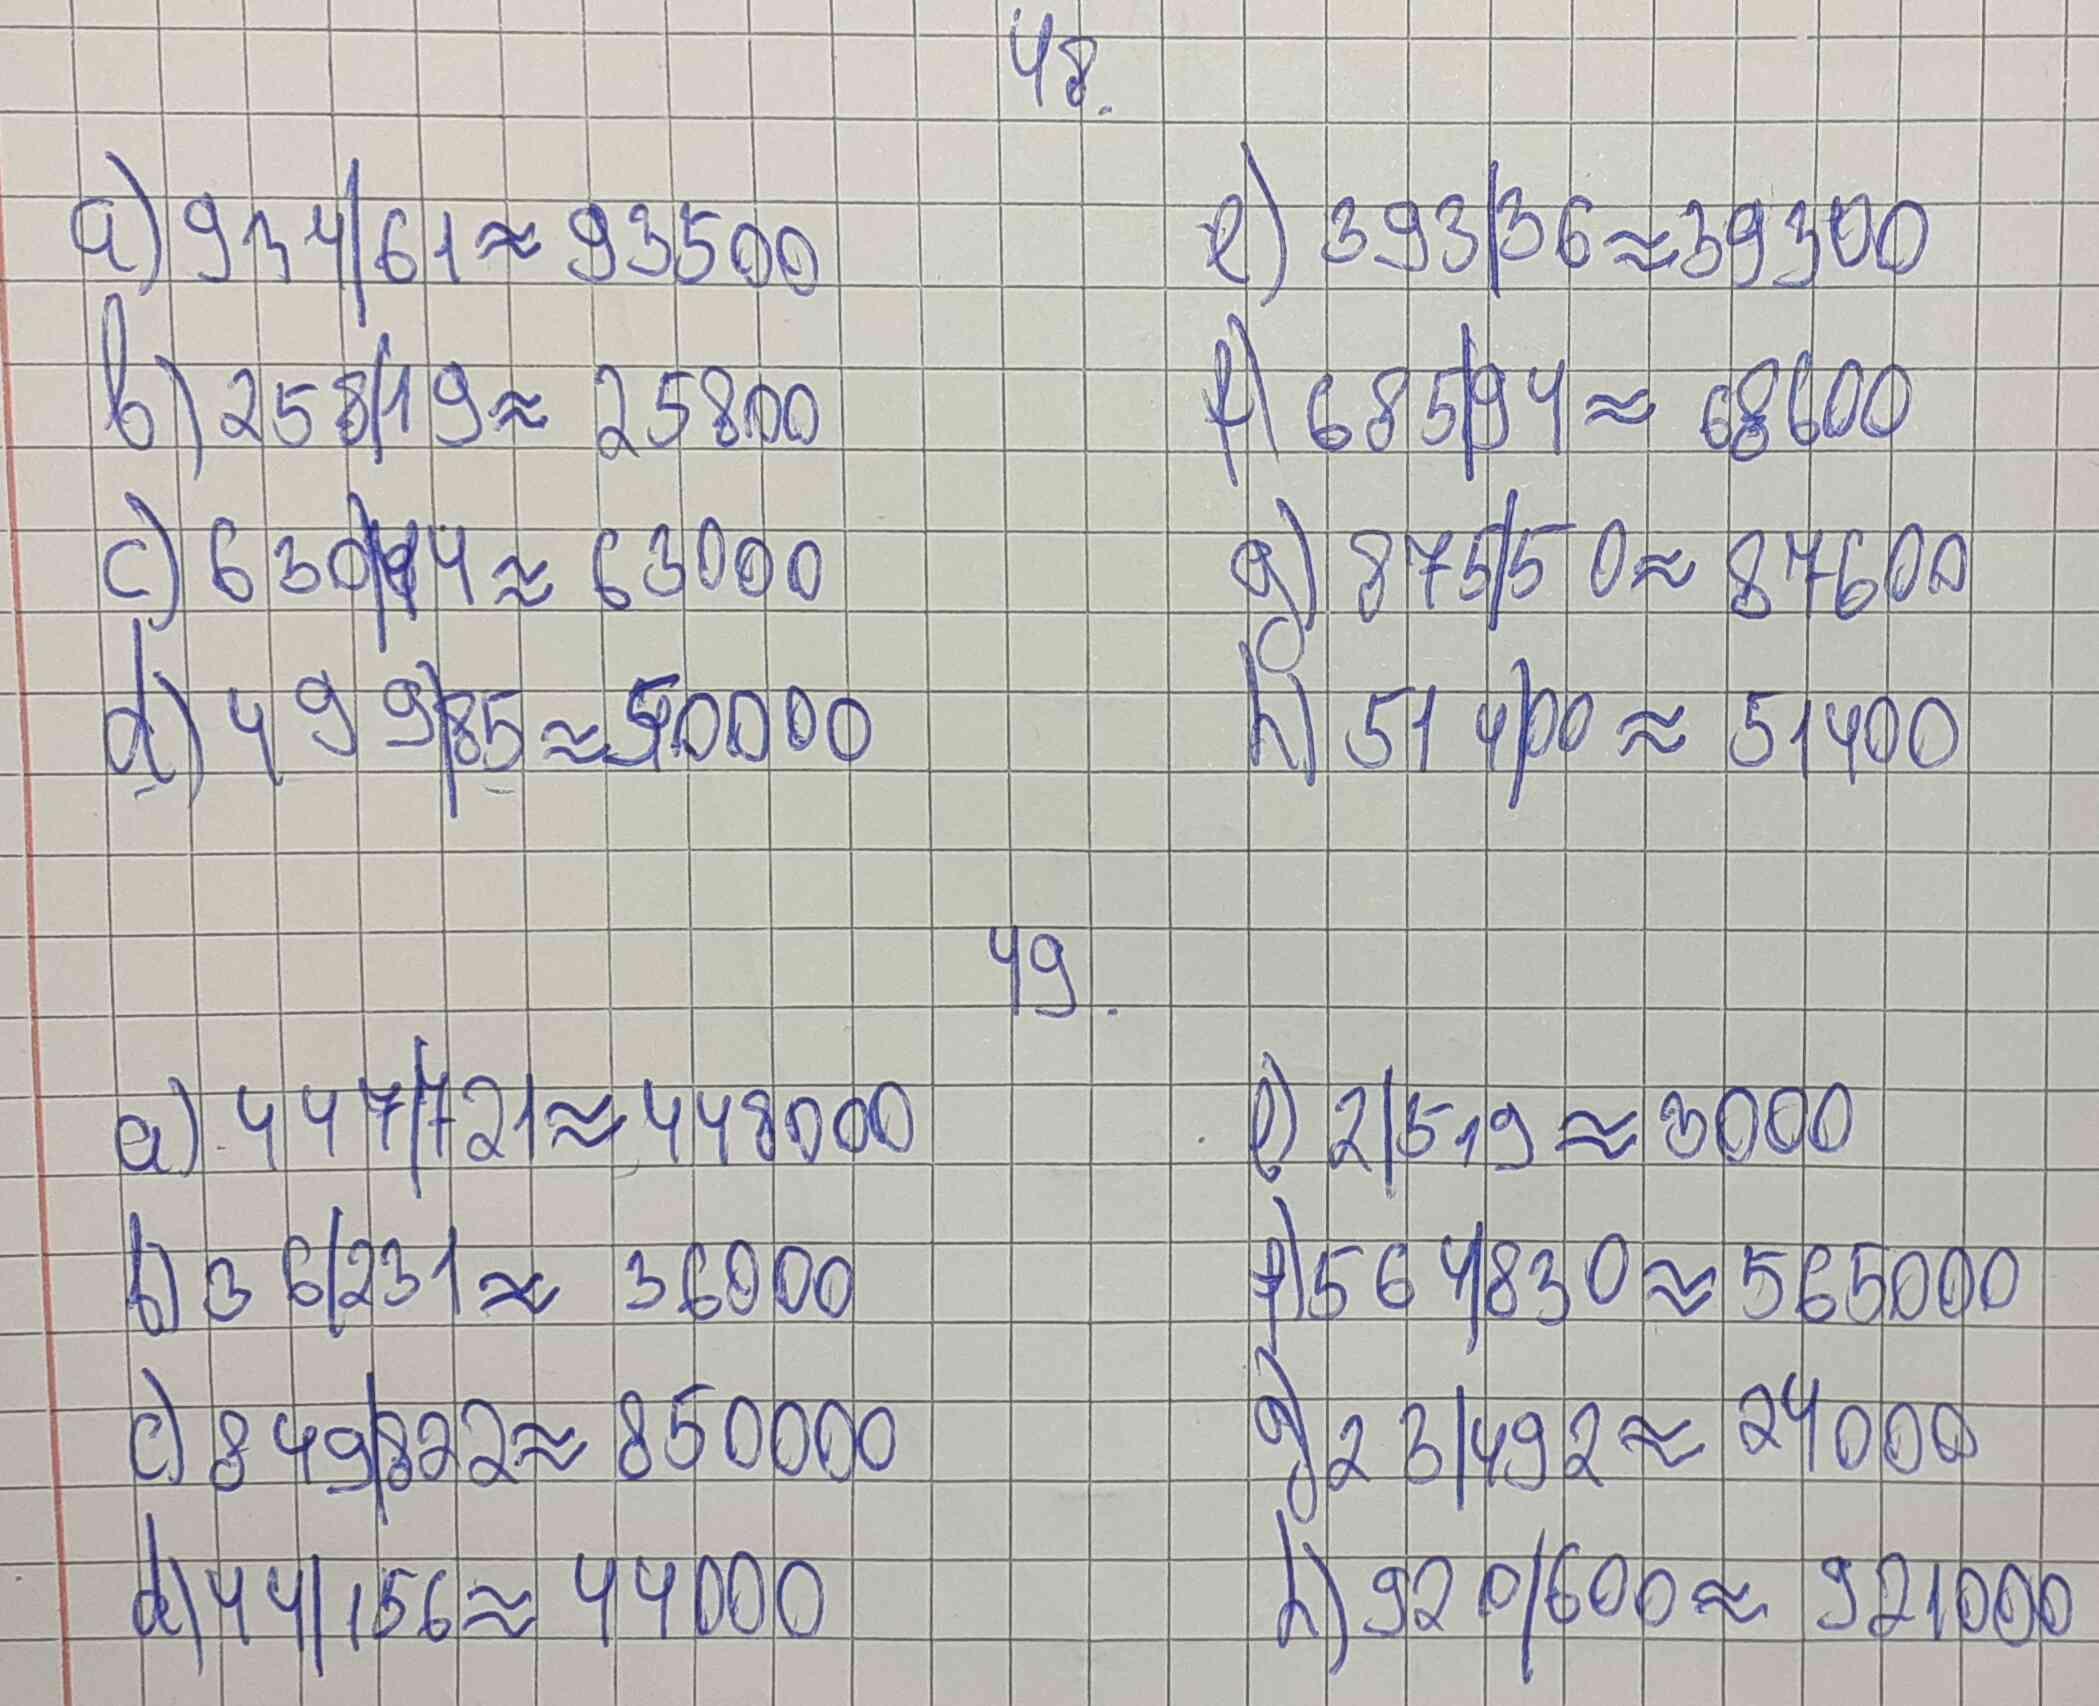 48.
a) 934|61 ≈ 93500
b) 258|19 ≈ 25800
c) 630|44 ≈ 63000
d) 499|85 ≈ 50000
e) 393|36 ≈ 39300
f) 685|94 ≈ 68600
g) 875|50 ≈ 87600
h) 514|00 ≈ 51400
49.
a) 447|721 ≈ 448000
b) 36|231 ≈ 36000
c) 849|822 ≈ 850000
d) 44|156 ≈ 44000
e) 2|519 ≈ 3000
f) 564|830 ≈ 565000
g) 23|492 ≈ 24000
h) 920|600 ≈ 921000